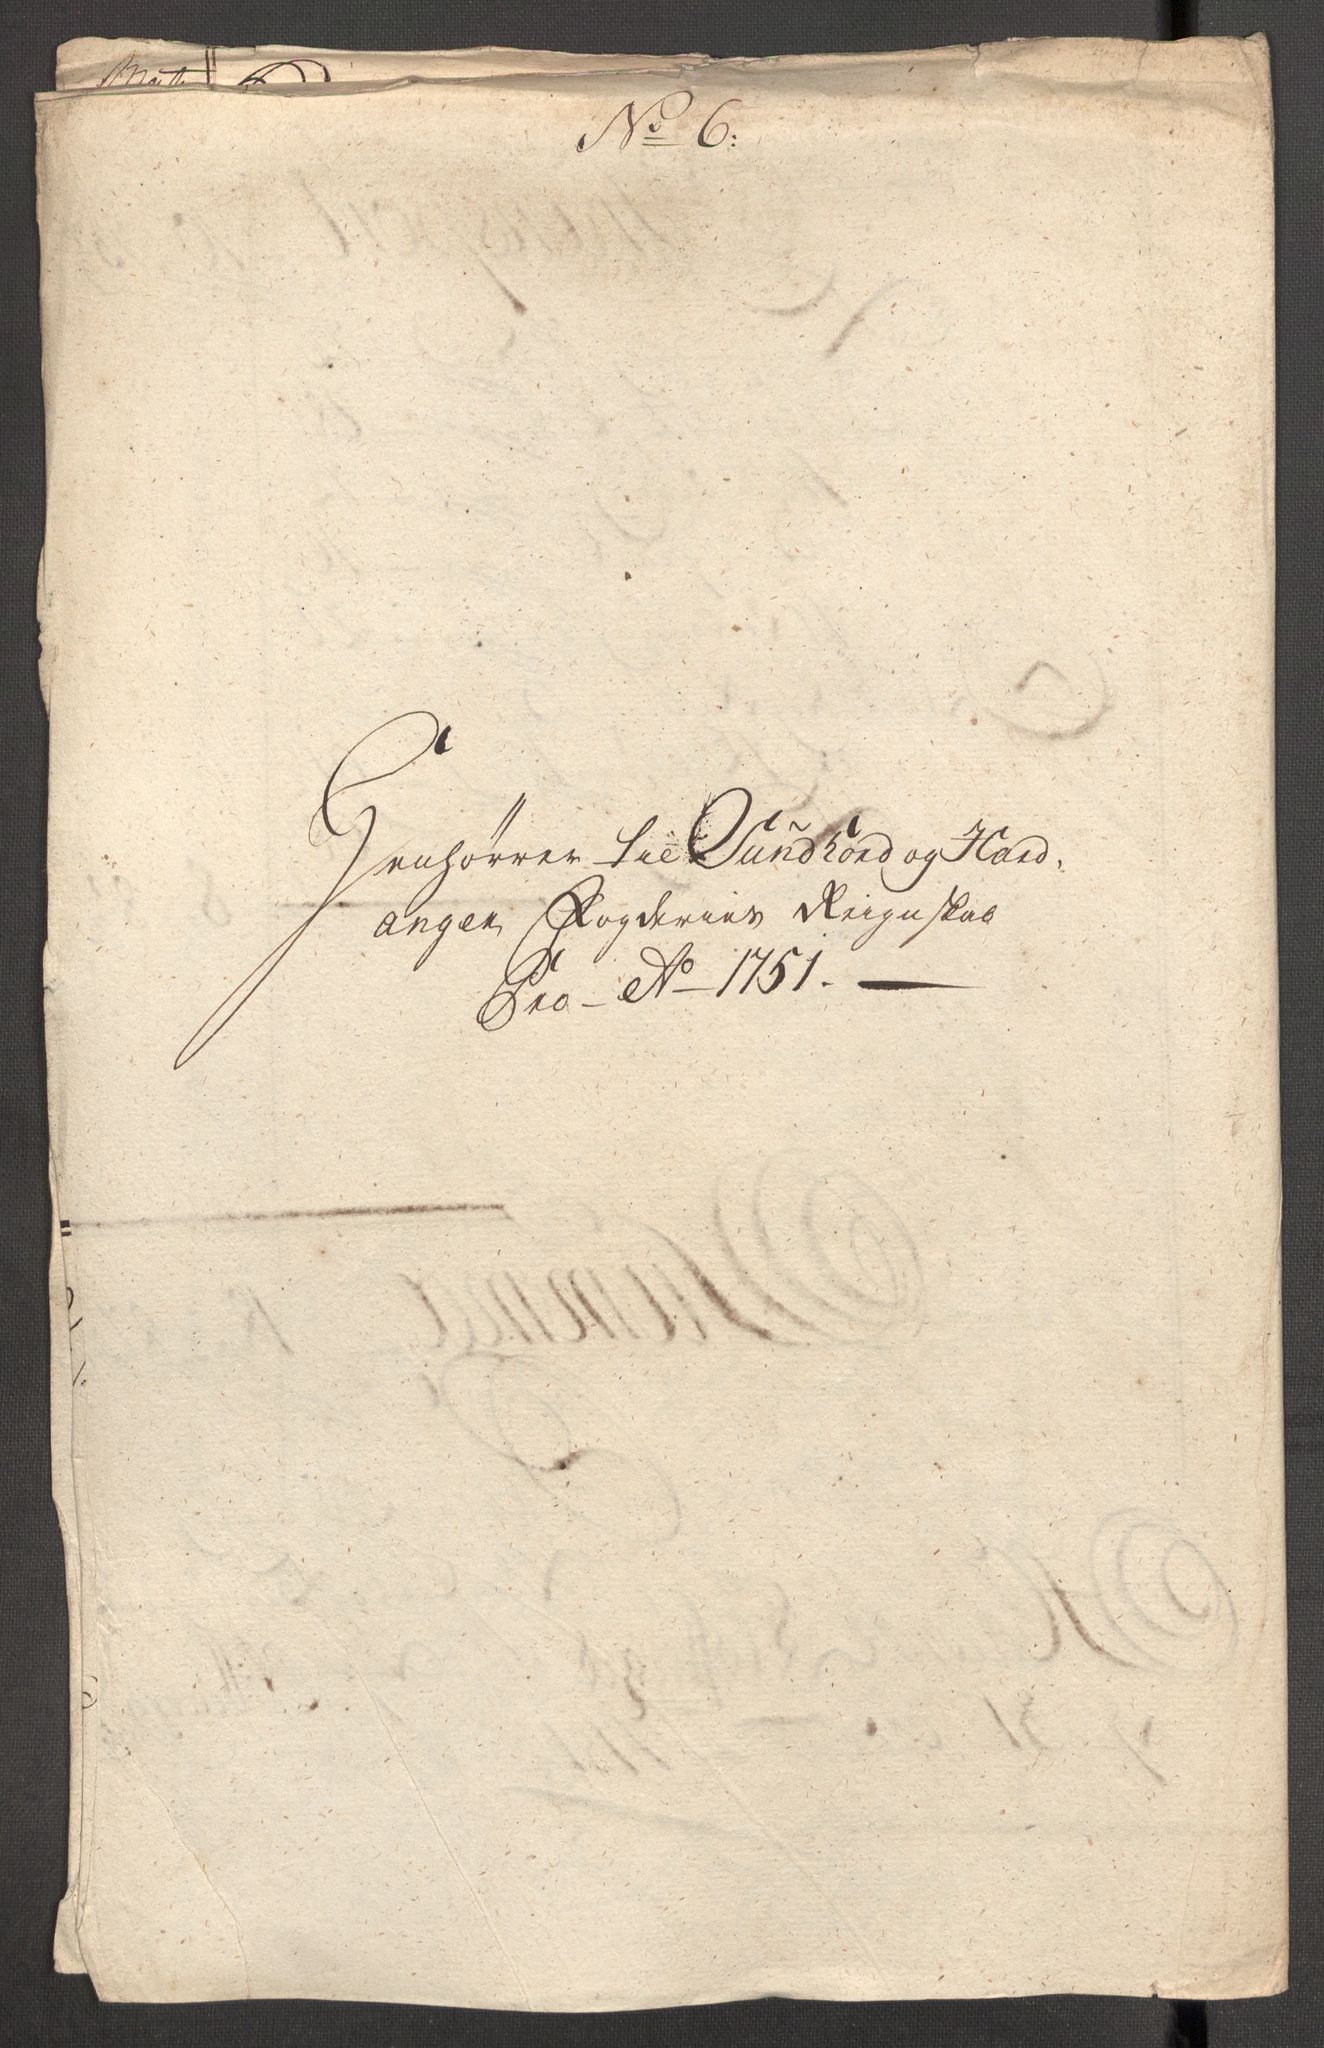 No 6:
Henhørrer til Sundhord og Hard,
anger Fogderies Reignskab
Pro - Ao 1751.